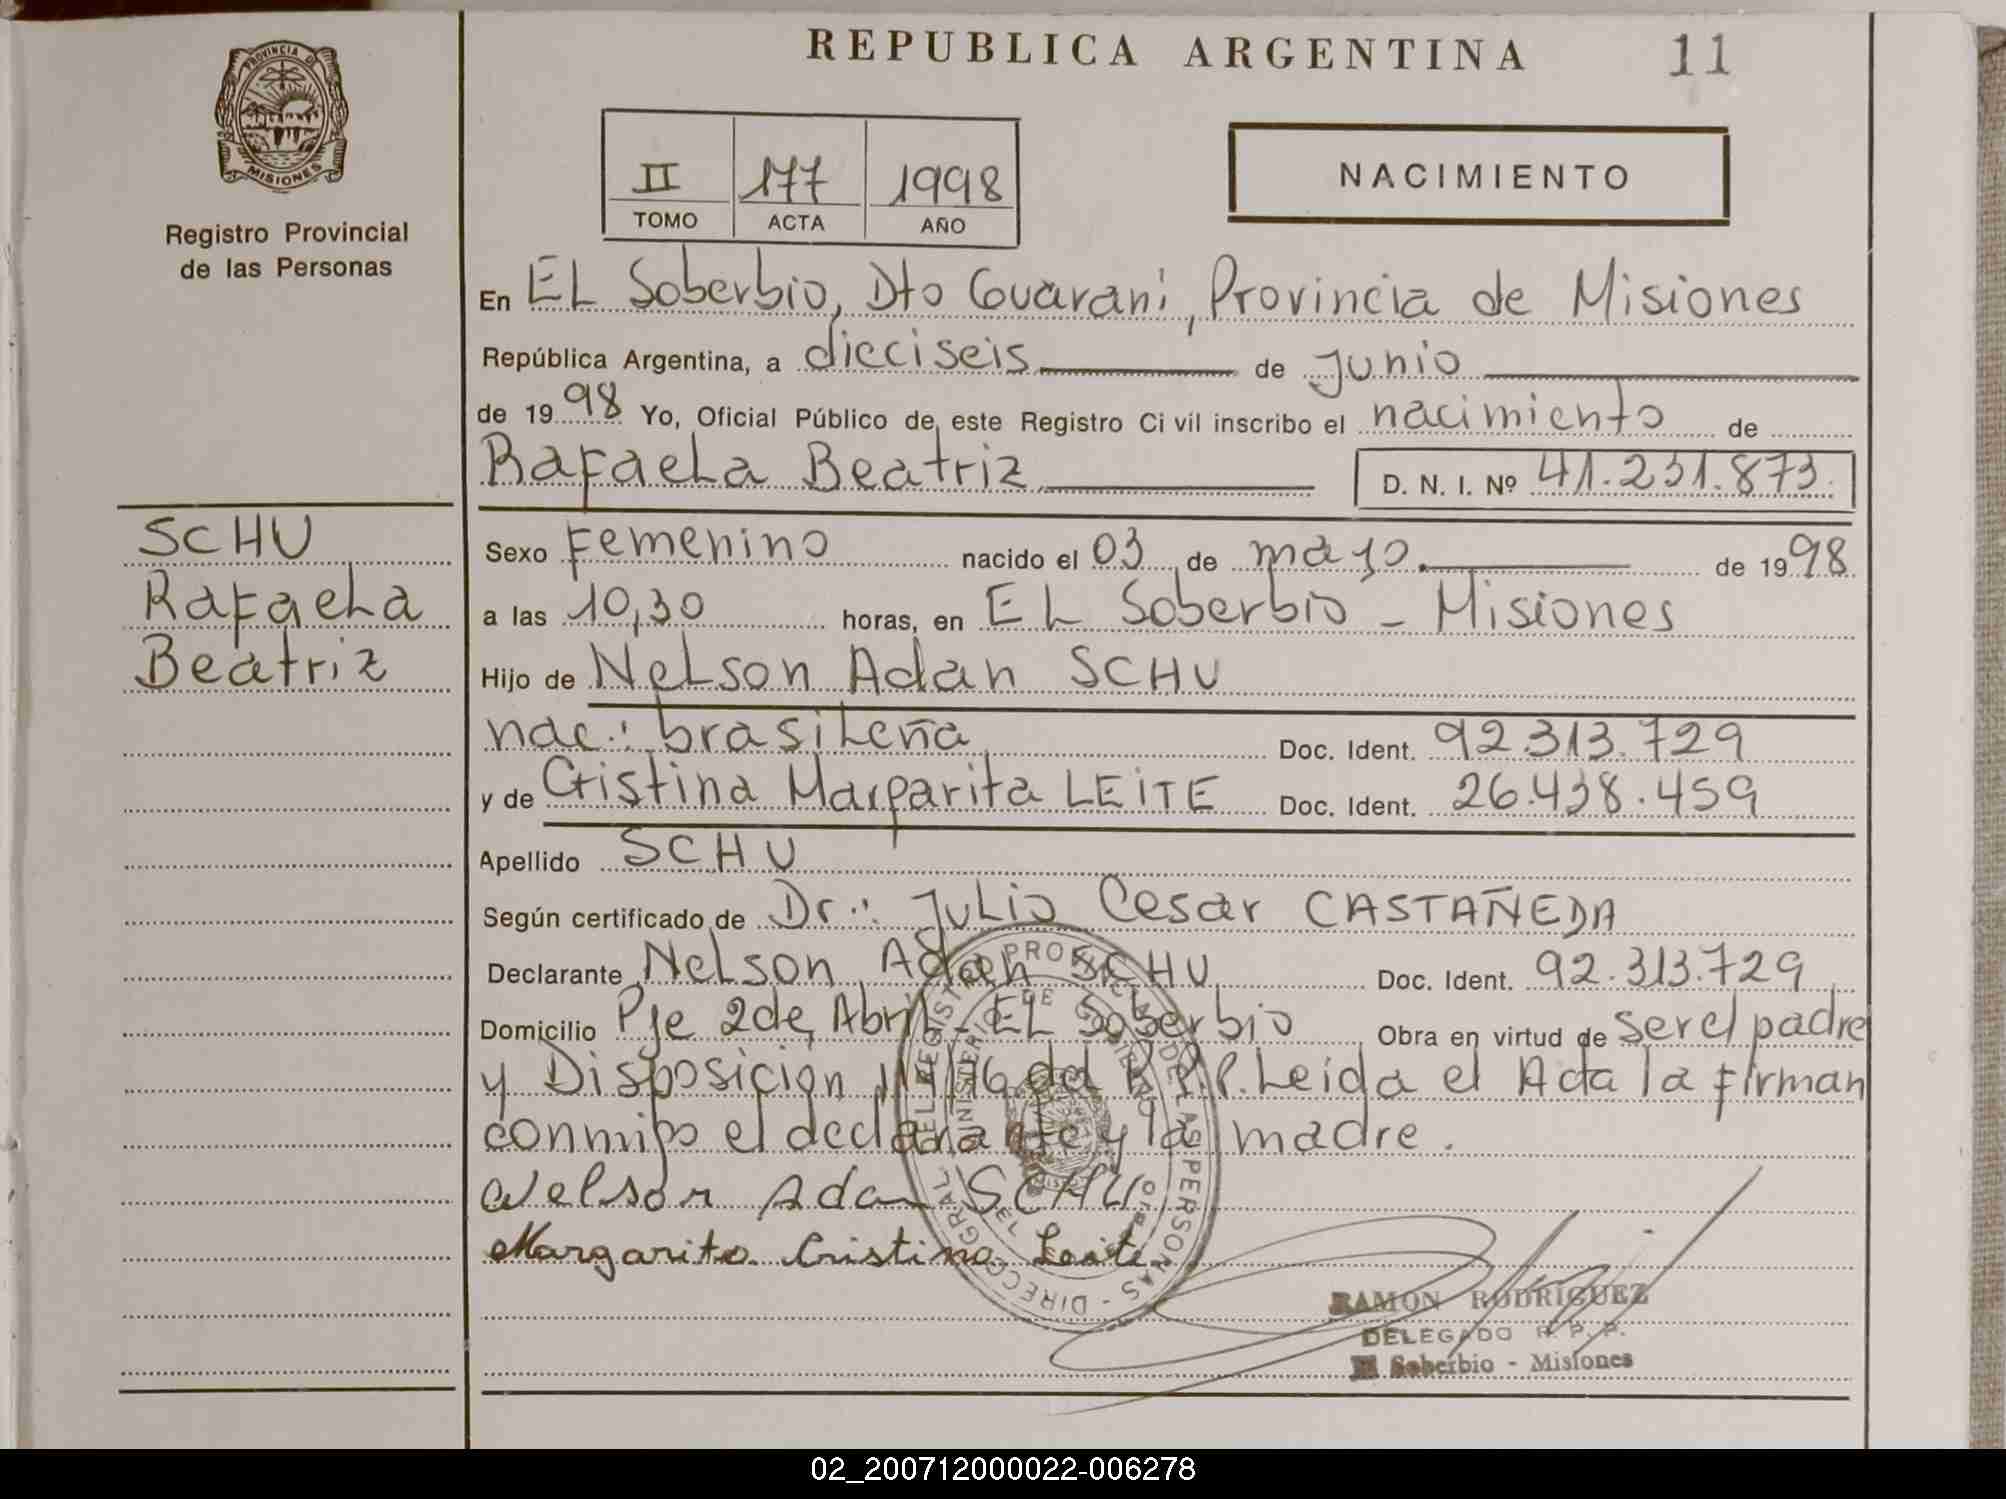 REPUBLICA ARGENTINA
11
PROVINCIA DE
MISIONES
Registro Provincial
de las Personas
II 177 1998
TOMO ACTA AÑO
NACIMIENTO
En EL Soberbio, Dto Guarani, Provincia de Misiones
República Argentina, a dieciseis de Junio
de 1998 Yo, Oficial Público de este Registro Civil inscribo el nacimiento de
Rafaela Beatriz D. N. I. Nº 41.231.873.
SCHU
Rafaela
Beatriz
Sexo Femenino nacido el 03 de mayo de 1998
a las 10,30 horas, en EL Soberbio - Misiones
Hijo de Nelson Adan SCHU
nac.: brasileña Doc. Ident. 92.313.729
y de Cristina Margarita LEITE Doc. Ident. 26.438.459
Apellido SCHU
Según certificado de Dr.: Julio Cesar CASTAÑEDA
Declarante Nelson Adan SCHU Doc. Ident. 92.313.729
Domicilio Pje 2 de Abril - EL Soberbio Obra en virtud de ser el padre
y Disposición del R.P.P. Leída el Acta la firman
conmigo el declarante y la madre.
Nelson Adan SCHU
Margarita Cristina Leite
RAMON RODRIGUEZ
DELEGADO R. P. P.
El Soberbio - Misiones
02_200712000022-006278